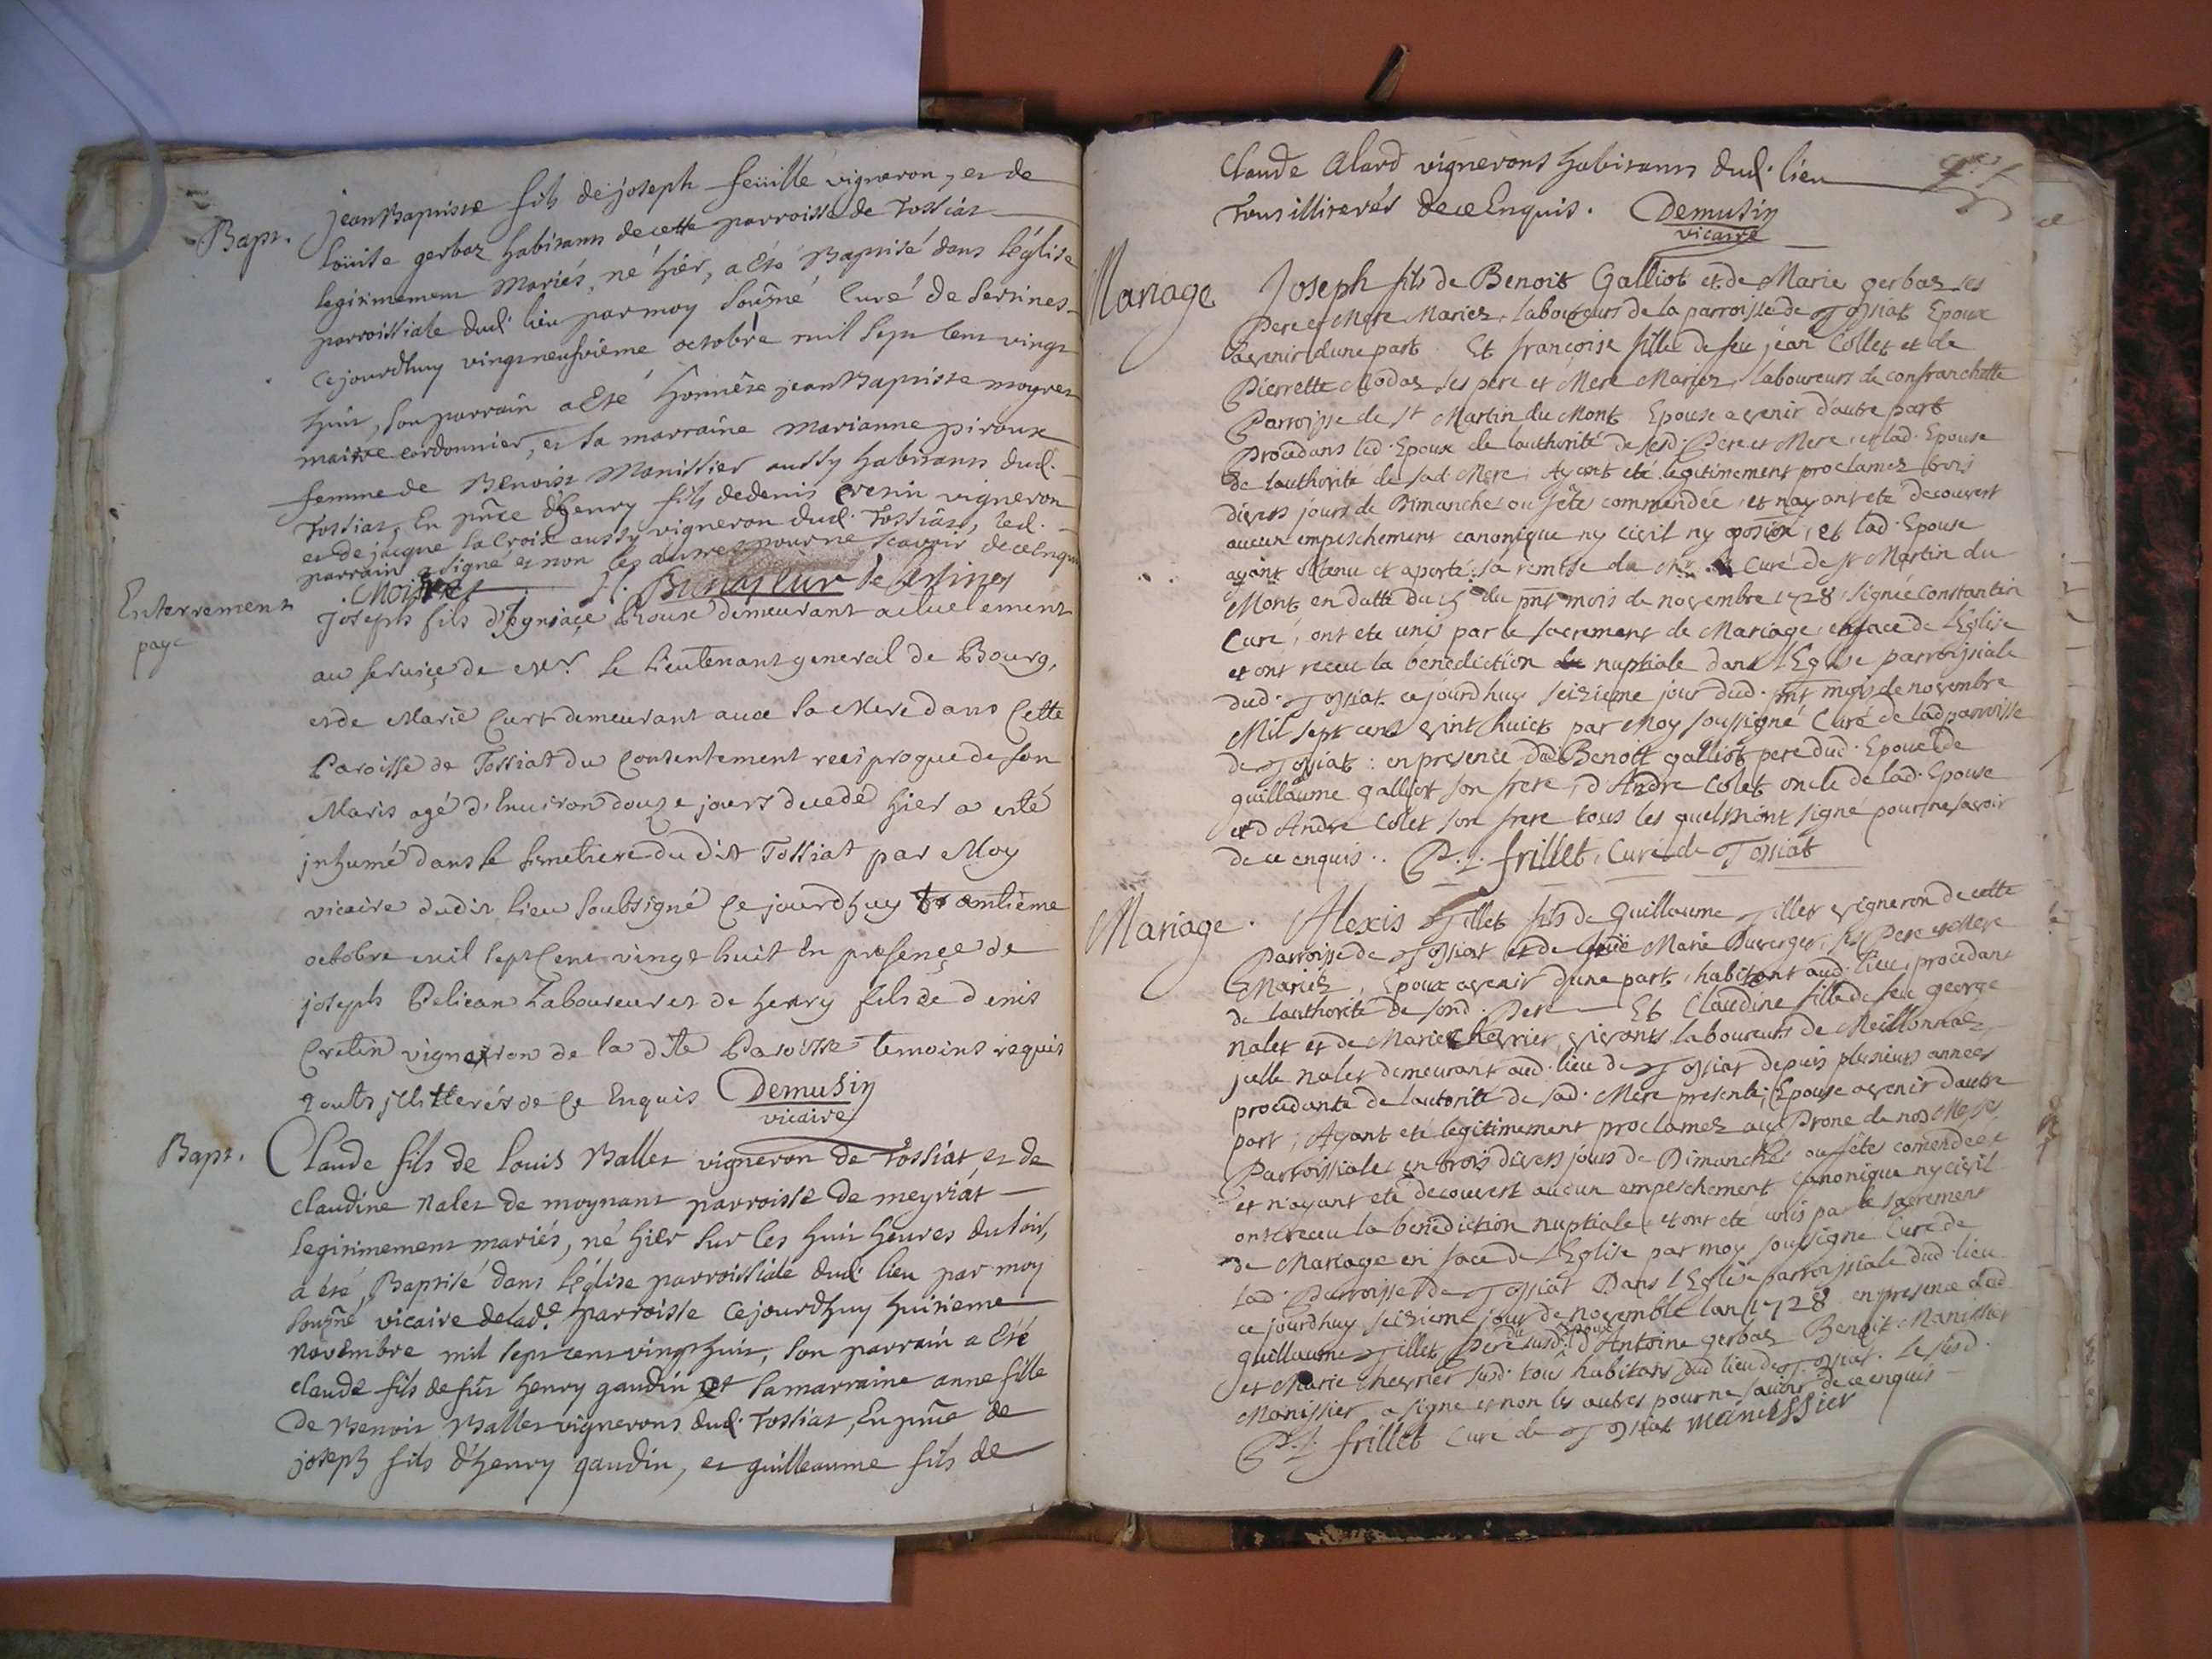 Bapt. jean Baptiste fils de joseph feüille vigneron, et de
loüise gerbaz habitants de cette parroisse de Tossiat
legitimement Mariés, né hier, a été Baptisé dans l'église
parroissiale dud. lieu par moy sousné Curé de Sertines
Cejourdhuy vingtneufvième octobre mil sept cent vingt
huit, son parrain a été honnête jean Baptiste moyret
maitre cordonnier, et sa marraine marianne piroux
femme de Benoist Manissier aussy habitants dud.
Tossiat, En pnce d'henry fils de denis Cretin vigneron
et de jacque la Croix aussy vigneron dud. Tossiat, led.
parrain a signé et non les autres pour ne scavoir de ce Enquis
Moiret
Enterrement
paye
joseph fils d'Igniace Proux demeurant actuelement
au service de Mr. le lieutenant general de Bourg,
et de Marie Curt demeurant avec sa Mere dans Cette
Paroisse de Tossiat du Consentement reciproque de son
Maris agé d'Environ douze jours decedé hier a esté
inhumé dans le Simetiere du dit Tossiat par Moy
vicaire dudit lieu soubsigné Ce jourdhuy trantième
octobre mil sept Cent vingt huit En presençe de
joseph Pelican Laboureur et de henry fils de denis
Cretin vigneron de la dite Paroisse temoins requis
touts illitterés de Ce Enquis Demusin
vicaire
Bapt. Claude fils de louis Ballet vigneron de Tossiat, et de
claudine Nalet de moynant parroisse de meyriat
legitimement mariés, né hier sur les huit heures du soir,
a été Baptisé dans l'église parroissiale dud. lieu par moy
sousné vicaire de lade. parroisse Cejourdhuy huitieme
novembre mil sept cent vingt huit, son parrain a été
claude fils de fût henry gaudin et sa marraine anne fille
de Benoit Ballet vignerons dud. Tossiat, En pnce de
joseph fils d'henry gaudin, et guilleaume fils de
Claude Alard vignerons habitants dud. lieu
Tous illiterés de ce Enquis. Demusin
vicaire
Mariage Joseph fils de Benoit Galliot et de Marie gerbaz ses
Pere et Mere Mariez, laboureurs de la parroisse de Tossiat Epoux
avenir d'une part Et françoise fille de feu jéan Collet et de
Pierrette Modaz ses pere et Mere Mariez laboureurs de confranchette
Parroisse de st Martin du Mont Epouse avenir d'autre part
Procedans led. Epoux de lauthorité de sesd. Pere et Mere, et lad. Epouse
de lauthorité de sad. Mere; Ayant eté legitimement proclamez trois
divers jours de Dimanches ou fêtes commendée, et nayant eté decouvert
aucun empeschement canonique ny civil ny oposion, et lad. Epouse
ayant obtenu et aporté sa remise du Mr Curé de st Martin du
Mont en datte du 15 du pnt mois de novembre 1728 signée Constantin
Curé, ont eté unis par le sacrement de Mariage en face de l'Eglise
et ont receu la benediction nuptiale dans l'Eglise parroissiale
dud. Tossiat. ce jourdhuy seizieme jour dud. pnt mois de novembre
Mil sept cent vint huict par Moy soussigné Curé de lad parroisse
de Tossiat: en presence de Benoitt galliot pere dud. Epoux de
guillaume galliot son frere, d'Andre Colet oncle de lad. Epouse
et d'Andre Colet son frere tous les quels n'ont signé pour ne savoir
de ce enquis.. P. J. frillet, Curé de Tossiat
Mariage. Alexis Tillet fils de Guillaume Tillet vigneron de cette
Parroisse de Tossiat et de feüe Marie Duverger ses Pere et Mere
Mariés, Epoux avenir d'une part, habitant aud. lieu, procedant
de lauthorité de sond. Pere Et Claudine fille de feu george
Nalet et de Marie Chevrier vivants laboureurs de Meillonnaz
jcelle Nalet demeurant aud. lieu de Tossiat depuis plusieurs années
procedante de lautorité de sad. Mere presente, Epouse avenir d'autre
part, Ayant eté legitimement proclamez aux Prone de nos Messes
Parroissiales en trois divers jours de Dimanches ou fêtes comendée
et n'ayant eté decouvert aucun empeschement Canonique ny civil
ont receu la benediction nuptiale et ont eté unis par le sacrement
de Mariage en face de l'Eglise par moy soussigné Curé de
lad. Parroisse de Tossiat Dans l'Eglise parroissiale dud lieu
ce jourdhuy seizieme jour de novembre lan 1728 en presence dud
guillaume Tillet Pere du susd. Epoux d'Antoine gerbaz Benoit Manissier
et Marie chevrier susd. tous habitans dud lieu de Tossiat. Le susd.
Manissier a signe et non les autres pour ne savoir de ce enquis
P. J. frillet Curé de Tossiat Manissier